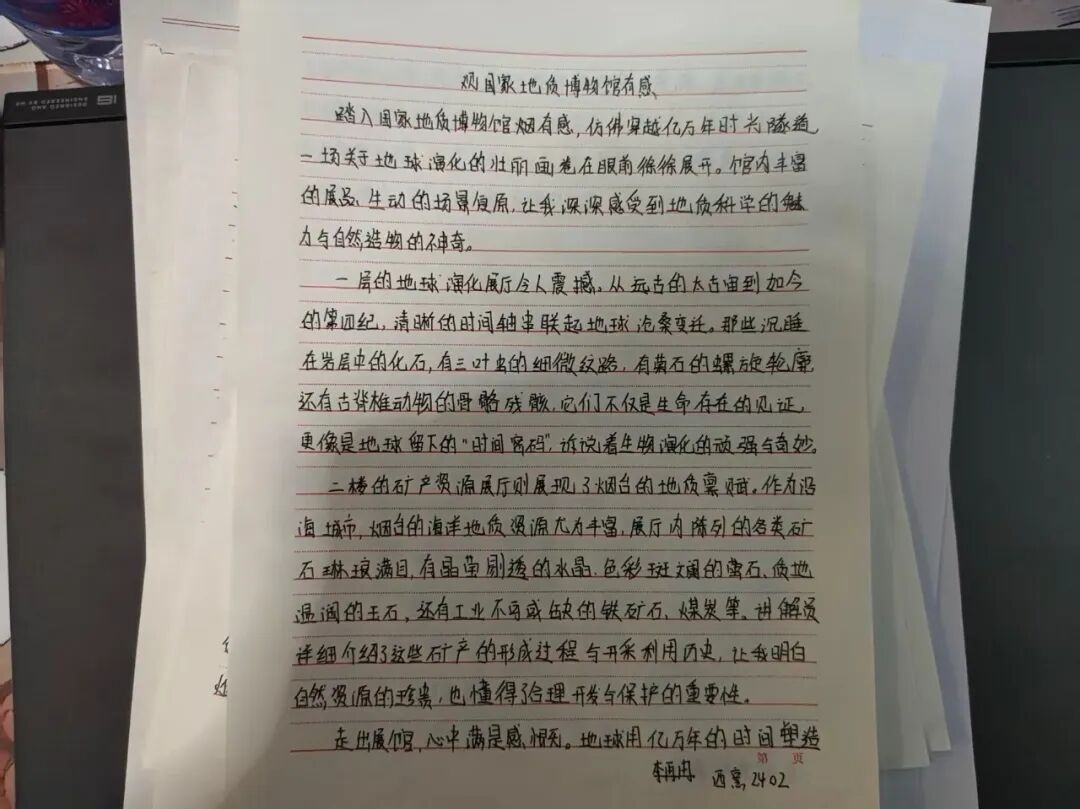 观国家地质博物馆有感
踏入国家地质博物馆烟有感，仿佛穿越亿万年时光隧道
一场关于地球演化的壮丽画卷在眼前徐徐展开。馆内丰富
的展品、生动的场景复原，让我深深感受到地质科学的魅
力与自然造物的神奇。
一层的地球演化展厅令人震撼。从远古的太古宙到如今
的第四纪，清晰的时间轴串联起地球沧桑变迁。那些沉睡
在岩层中的化石，有三叶虫的细微纹路，有菊石的螺旋轮廓
还有古脊椎动物的骨骼残骸，它们不仅是生命存在的见证，
更像是地球留下的“时间密码”，诉说着生物演化的顽强与奇妙。
二楼的矿产资源展厅则展现了烟台的地质禀赋。作为沿
海城市，烟台的海洋地质资源尤为丰富，展厅内陈列的各类矿
石琳琅满目，有晶莹剔透的水晶、色彩斑斓的萤石、质地
温润的玉石，还有工业不可或缺的铁矿石、煤炭等。讲解员
详细介绍了这些矿产的形成过程与开采利用历史，让我明白
自然资源的珍贵，也懂得了合理开发与保护的重要性。
走出展馆，心中满是感慨。地球用亿万年的时间塑造
第 页
2402
DESIGNED AND
ENGINEERED BY